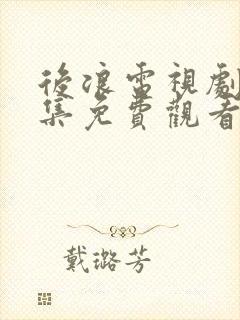 後浪電視劇
集免費觀看
戴璐芳